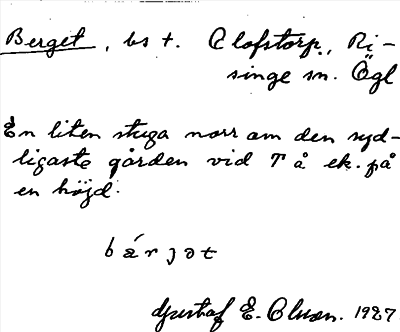 Berget, bs t. Olofstorp, Ri-
singe sn. Ögl
En liten stuga norr om den syd-
ligaste gården vid T å ek. på
en höjd.
bárjət
Gustaf E. Olsson. 1927